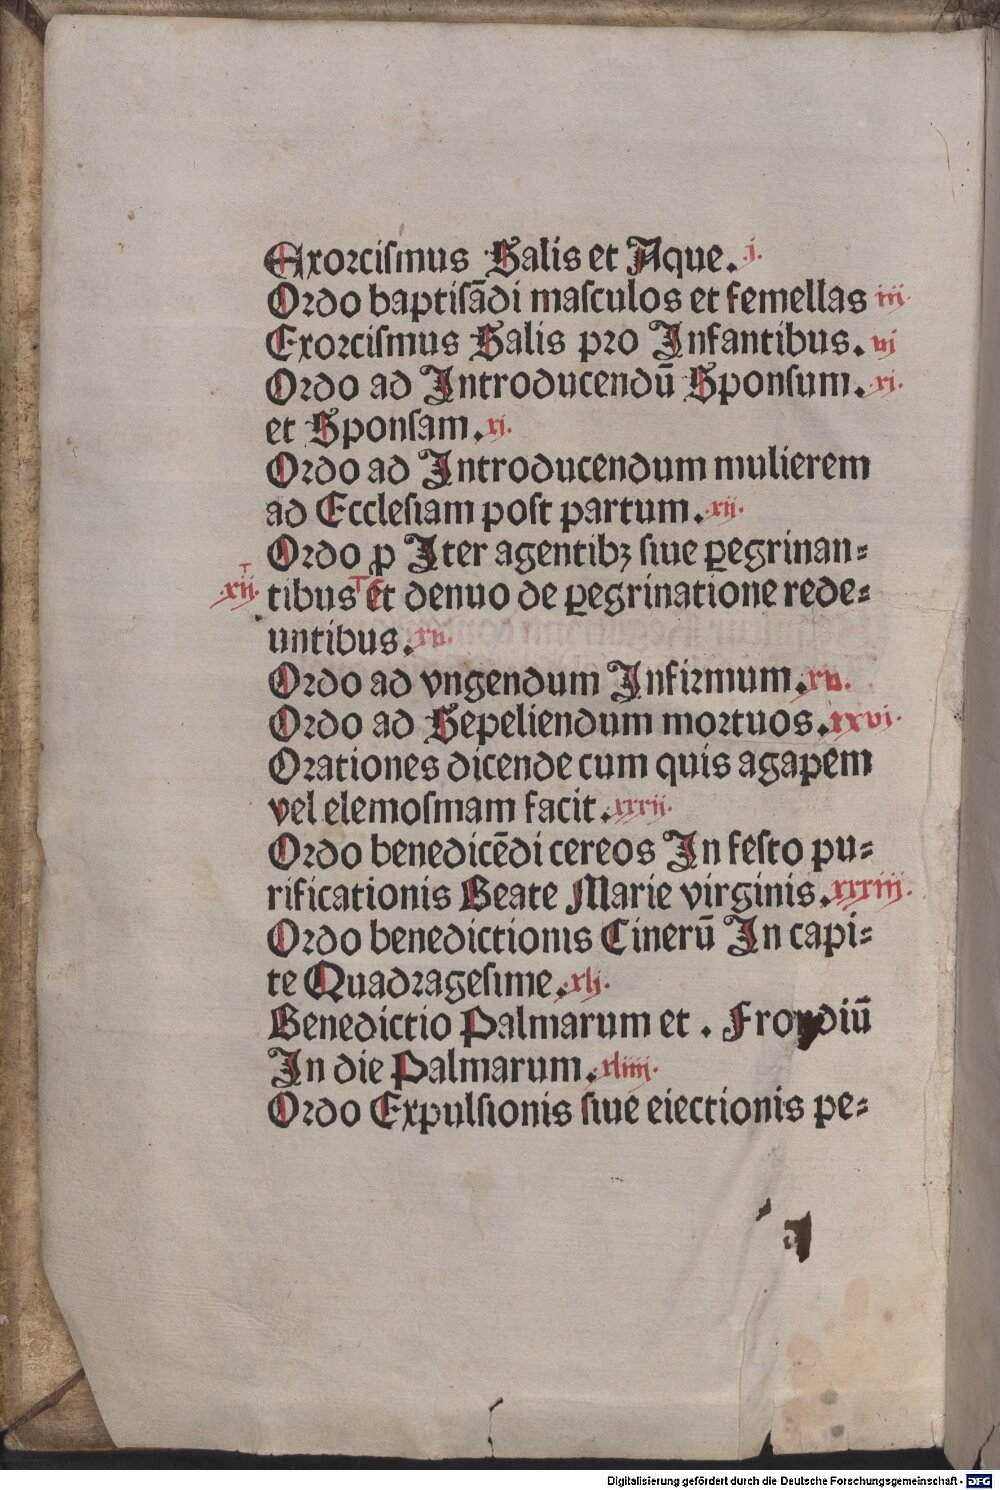 Exorcismus Salis et Aque. .j.
Ordo baptisādi masculos et femellas iij.
Exorcismus Salis pro Infantibus. vj
Ordo ad Introducendū Sponsum. .xj.
et Sponsam. .xj.
Ordo ad Introducendum mulierem
ad Ecclesiam post partum. .xij.
Ordo ꝓ Iter agentibꝫ siue ꝑegrinan⸗
.xij. tibus et denuo de ꝑegrinatione rede⸗
untibus.
Ordo ad vngendum Infirmum. .xv.
Ordo ad Sepeliendum mortuos. .xxvi.
Orationes dicende cum quis agapem
vel elemosmam facit. .xxxij.
Ordo benedicēdi cereos In festo pu⸗
rificationis Beate Marie virginis. .xxxiij.
Ordo benedictionis Cinerū In capi⸗
te Quadragesime. .xlj.
Benedictio Palmarum et . Frondiū
In die Palmarum. .xliiij.
Ordo Expulsionis siue eiectionis pe⸗
Digitalisierung gefördert durch die Deutsche Forschungsgemeinschaft - DFG